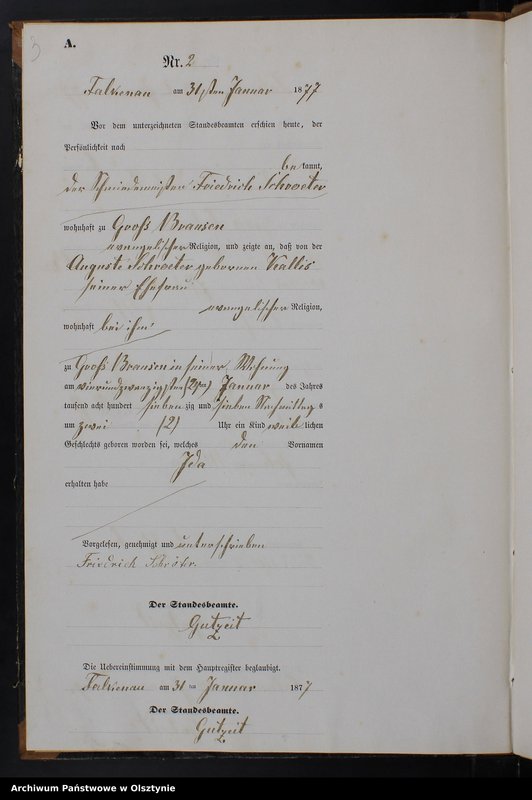 3
A.
Nr. 2
Falkenau am 31sten Januar 1877
Vor dem unterzeichneten Standesbeamten erschien heute, der
Persönlichkeit nach
bekannt,
der Schmiedemeister Friedrich Schroeter
wohnhaft zu Groß Bransen
evangelischer Religion, und zeigte an, daß von der
Auguste Schroeter geborenen Kallis
seiner Ehefrau
evangelischer Religion,
wohnhaft bei ihm
zu Groß Bransen in seiner Wohnung
am vierundzwanzigsten (24ten) Januar des Jahres
tausend acht hundert siebenzig und sieben Nachmittags
um zwei (2) Uhr ein Kind weiblichen
Geschlechts geboren worden sei, welches den Vornamen
Ida
erhalten habe
Vorgelesen, genehmigt und unterschrieben
Friedrich Schröter.
Der Standesbeamte.
Gutzeit
Die Uebereinstimmung mit dem Hauptregister beglaubigt.
Falkenau am 31 ten Januar 1877
Der Standesbeamte.
Gutzeit
Archiwum Państwowe w Olsztynie